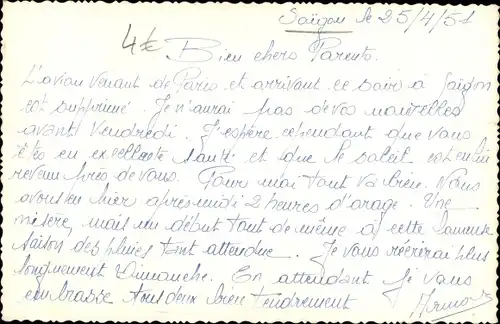 Saïgon le 25/4/51
4€
Bien chers Parents.
L'avion venant de Paris et arrivant ce soir à Saïgon
est supprimé. Je n'aurai pas de vos nouvelles
avant Vendredi. J'espère cependant que vous
êtes en excellente santé et que le soleil est enfin
revenu près de vous. Pour moi tout va bien. Nous
avons eu hier après-midi 2 heures d'orage. Une
misère, mais un début tout de même à cette fameuse
saison des pluies tant attendue. Je vous récrirai plus
longuement Dimanche. En attendant je vous
embrasse tous deux bien tendrement